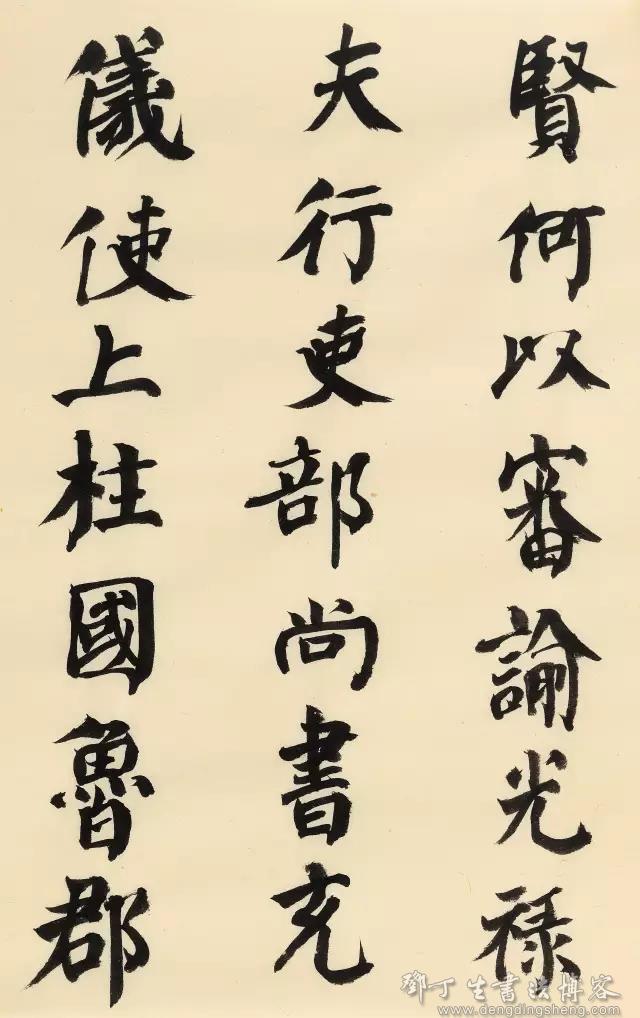 賢何以審諭光禄
夫行吏部尚書充
儀使上柱國魯郡
鄧丁生書法博客
www.dengdingsheng.com